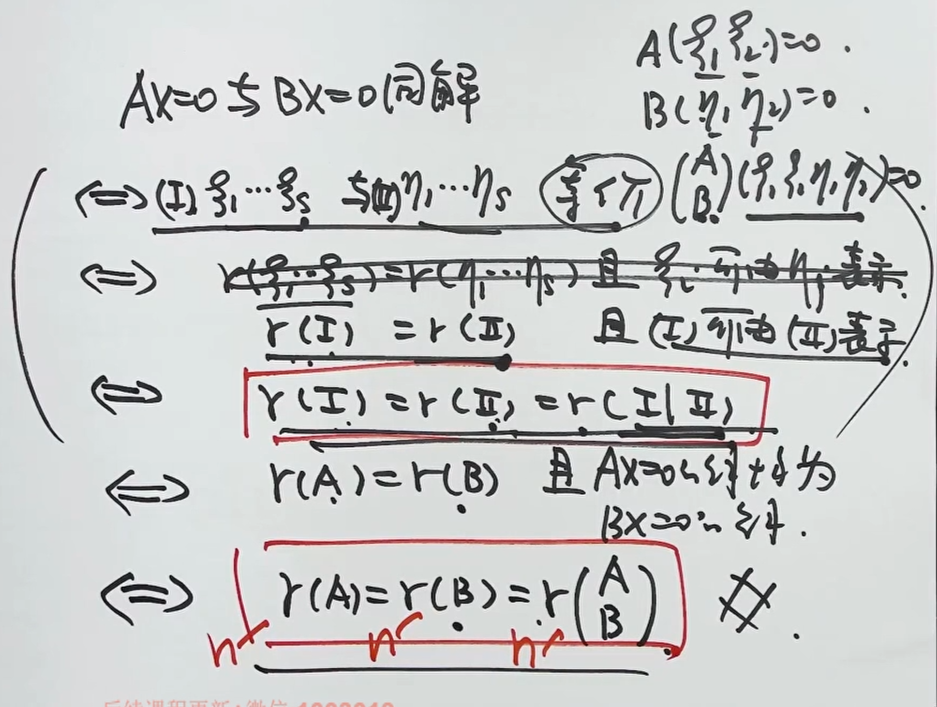 A(ξ₁ ξ₂)=0.
Ax=0与Bx=0同解
B(η₁, η₂)=0.
⟺ (I) ξ₁…ξₛ 与(II)η₁…ηₛ 等价 (A B)(ξ₁ ξ₂ η₁ η₂)=0
⟺ r(ξ₁…ξₛ)=r(η₁…ηₛ)且 ξᵢ 可由ηⱼ表示.
r(I) = r(II) 且(I)可由(II)表示.
⟺ r(I)=r(II)=r(I|II)
⟺ r(A)=r(B) 且Ax=0的解均为
Bx=0的解.
⟺ r(A)=r(B)=r(A B) #.
n n n
后续课程更新:微信